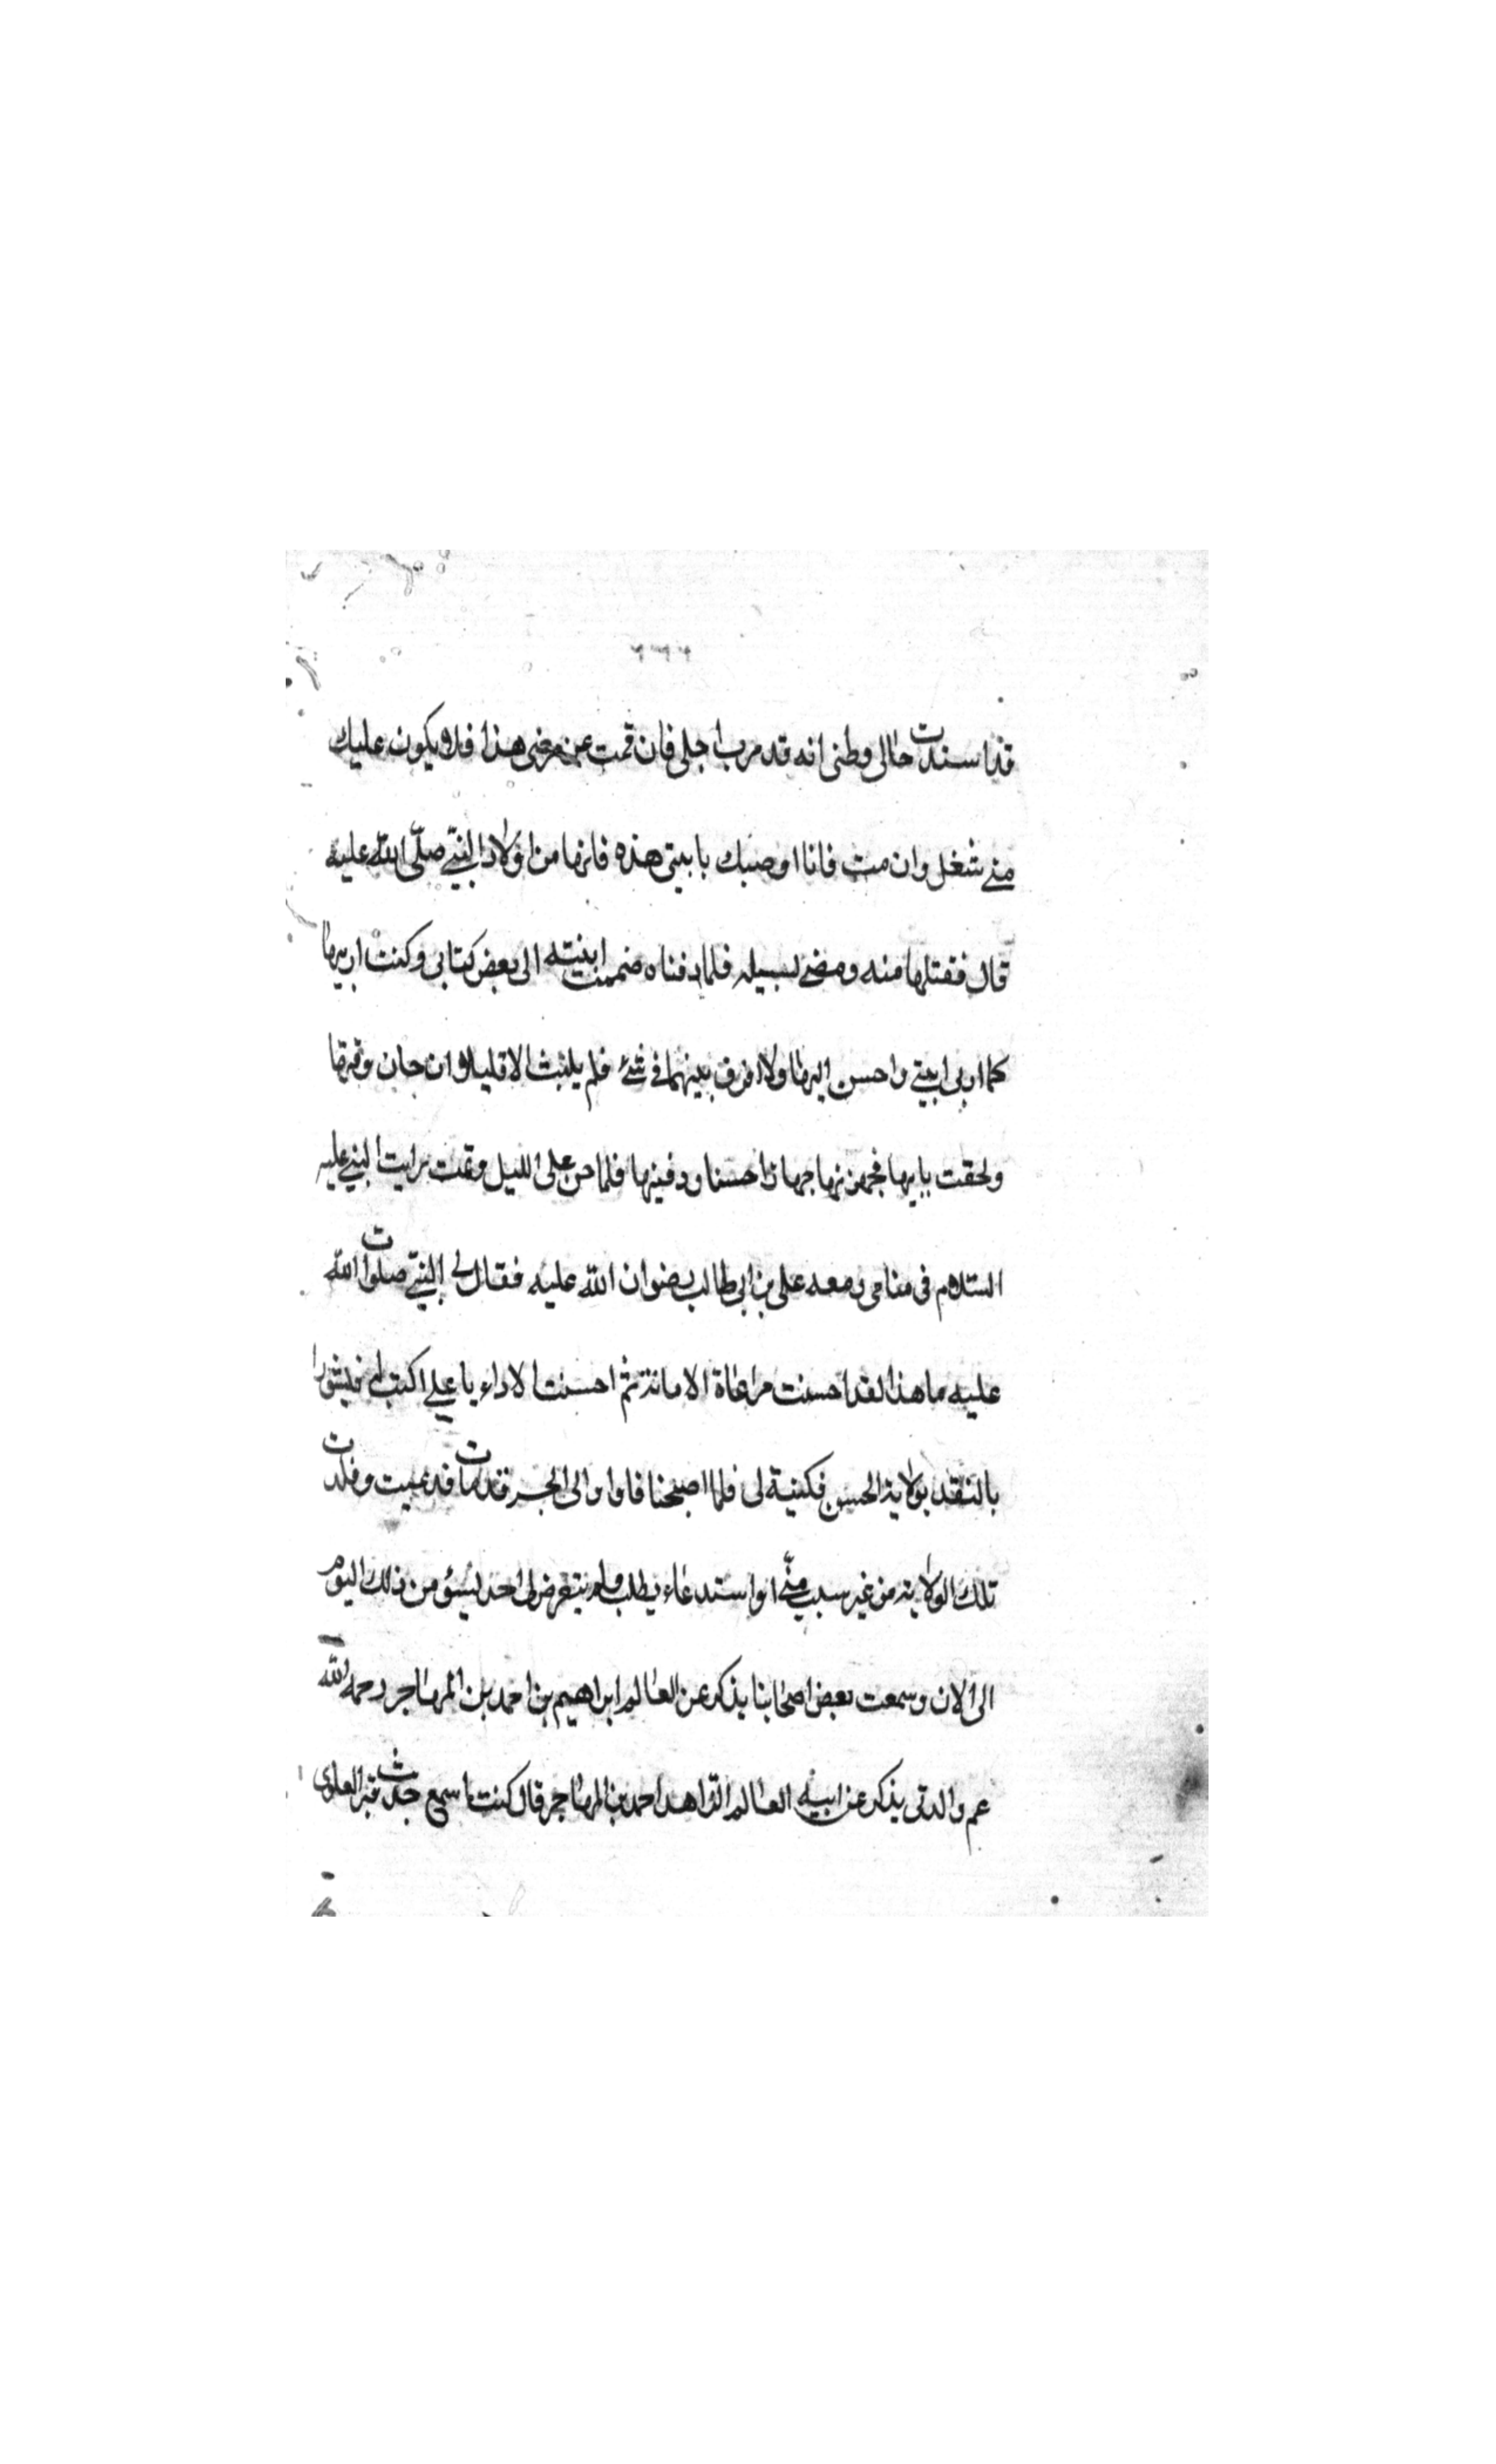 قد اسندت حالى وظنى انه قد قرب اجلى فان قمت عن مرضى هذا فلا يكون عليك
منى شغل وان مت فانا اوصيك بابنتى هذه فانها من اولاد النبى صلى الله عليه
قال فقبلتها منه ومضى لسبيله فلما دفناه ضممت ابنته الى بعض كتابى وكنت اربيها
كما اربى ابنتى واحسن اليها ولا افرق بينهما فى شئ فلم يلبث الا قليلا وان حان وقتها
ولحقت بابيها فجهزتها جهازا حسنا ودفنتها فلما جن على الليل ونمت رايت النبى عليه
السلام فى منامى ومعه على بن ابى طالب رضوان الله عليه فقال لى النبى صلوات الله
عليه ما هذا لقد احسنت مراعاة الامانة ثم احسنت الاداء يا على اكتب له
بالنقد بولاية الحسن فكتبه لى فلما اصبحنا قد
تلك الولاية من غير سبب منى او استدعاء بطلب ولم يتعرض لى احد بسوء من ذلك اليوم
الى الان وسمعت بعض اصحابنا يذكر عن العالم ابراهيم بن احمد بن المهاجر رحمه الله
عم والدتى يذكر عن ابيه العالم الزاهد احمد بن المهاجر قال كنت اسمع قبر العلوى